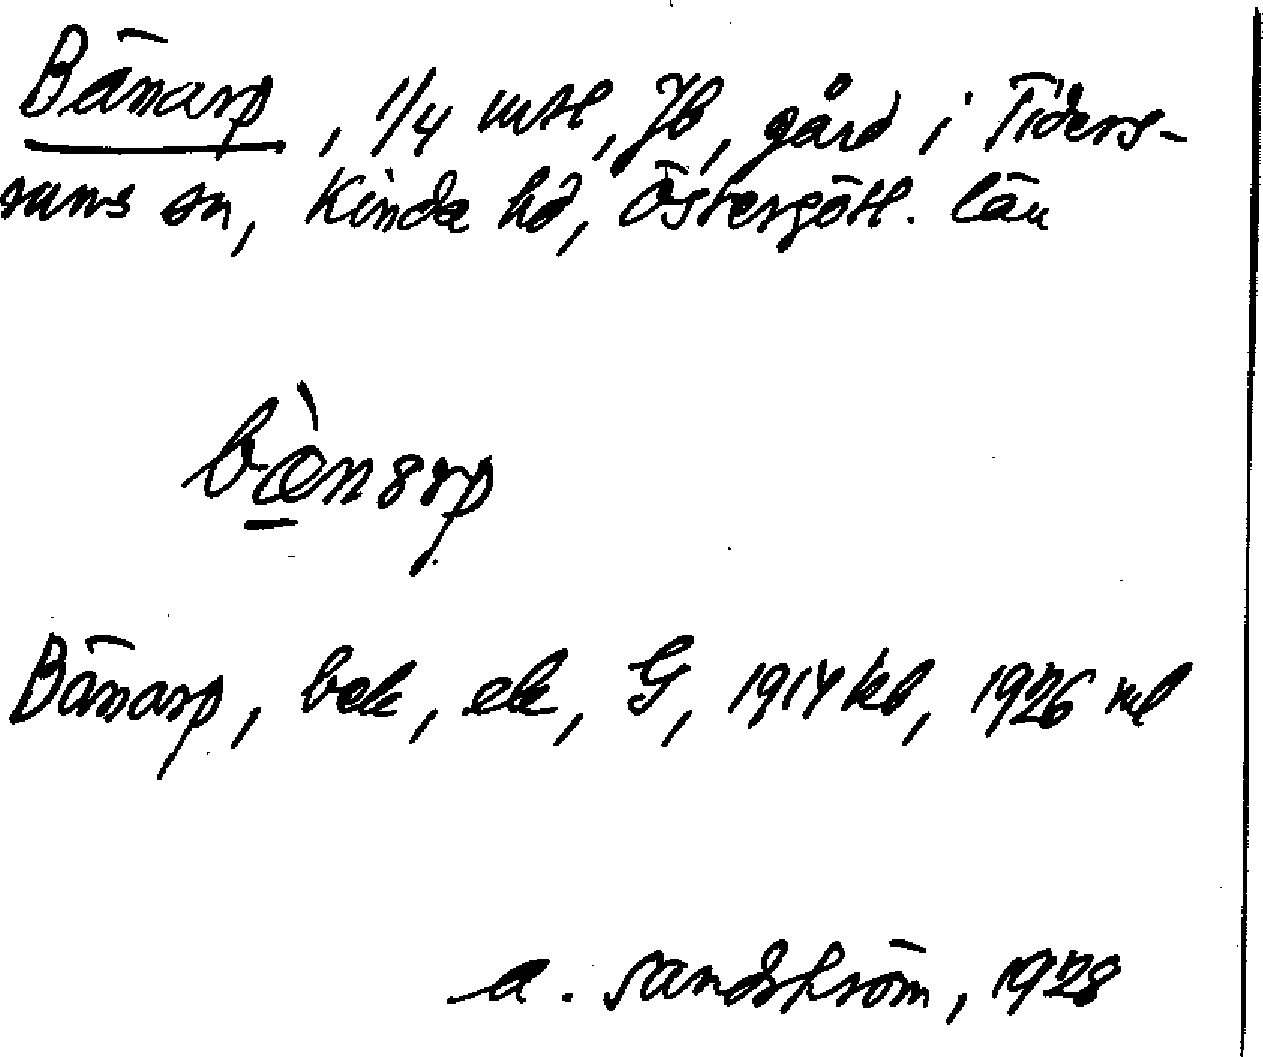 Bänarp, 1/4 mtl, Jb, gård i Tiders-
rums sn, Kinda hd, Östergötl. län
bæ̀nsrp
Bänarp, bek, ek, G, 1914 kb, 1926 ml
A. Sandström, 1928